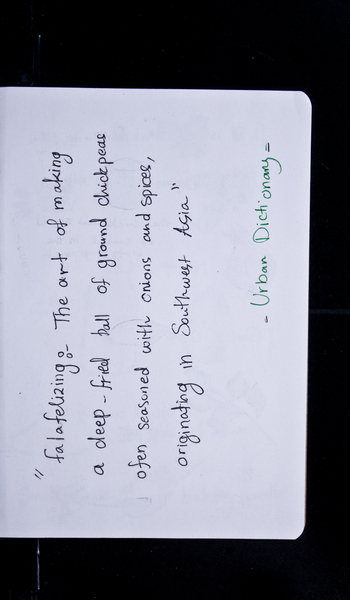 "falafelizing:- The art of making
a deep-fried ball of ground chickpeas
ofen seasoned with onions and spices,
originating in Southwest Asia"
- Urban Dictionary -